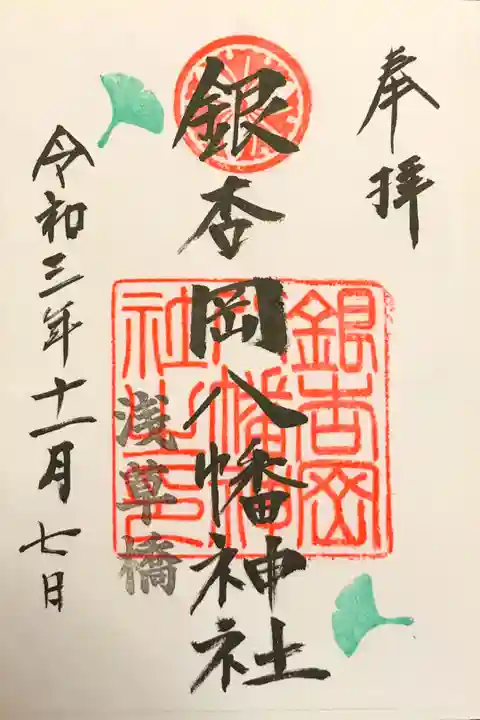 奉拝
銀杏岡八幡神社
浅草橋
令和三年十一月七日
銀杏岡
八幡神
社之印